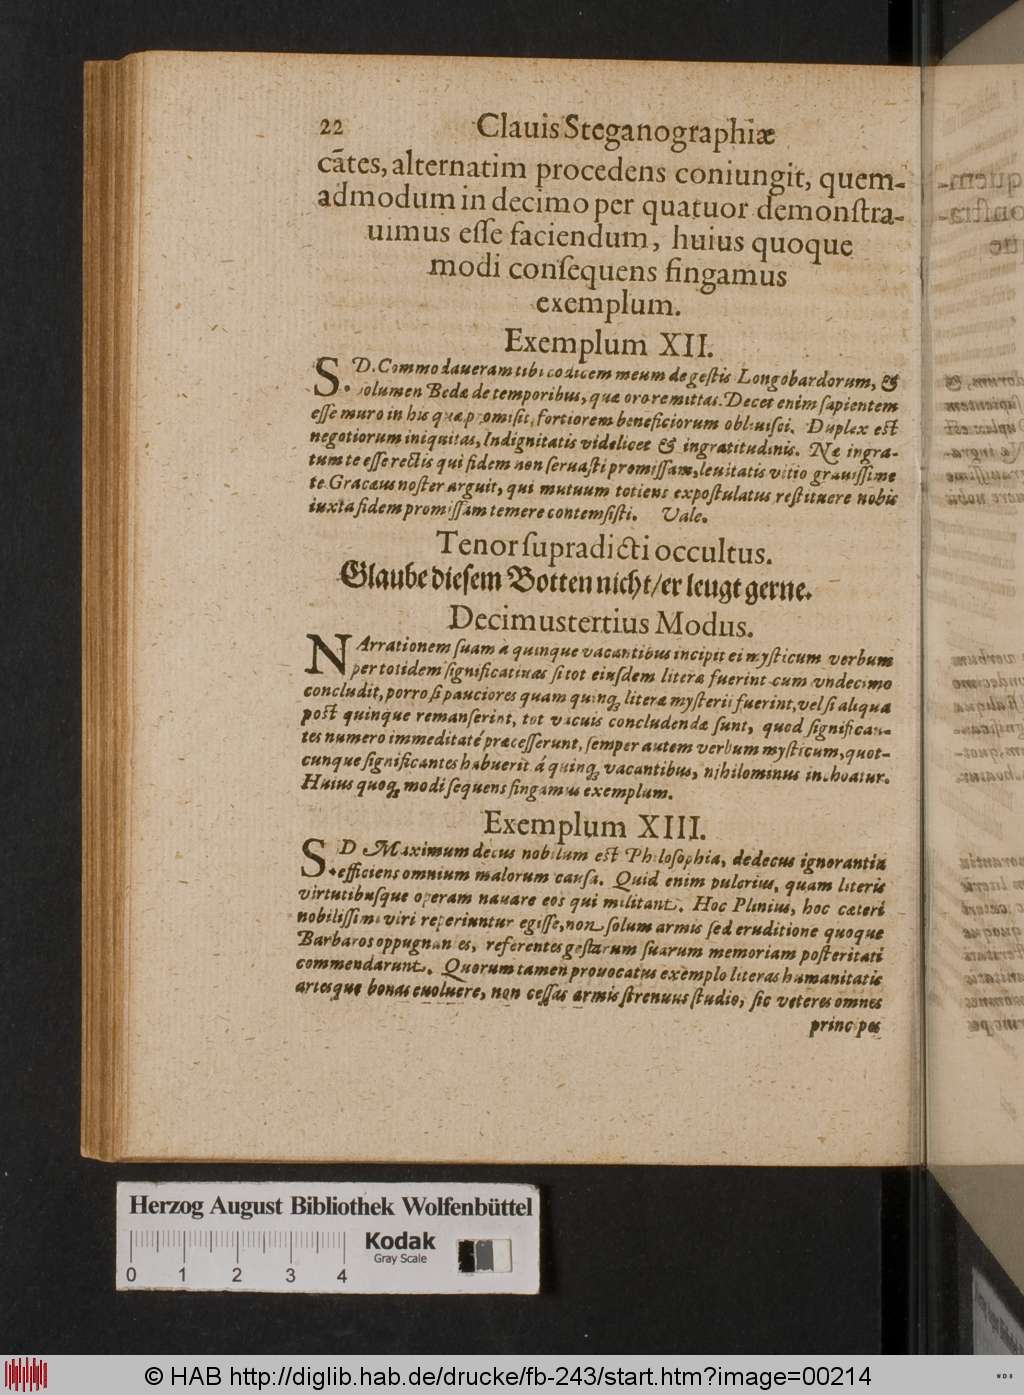 22 Clauis Steganographiæ
cātes, alternatim procedens coniungit, quem-
admodum in decimo per quatuor demonſtra-
uimus eſſe faciendum, huius quoque
modi conſequens fingamus
exemplum.
Exemplum XII.
S. D. Commodaueram tibi codicem meum de geſtis Longobardorum, &
volumen Bedæ de temporibus, quæ oro remittas. Decet enim ſapientem
eſſe muro in his quæ promiſit, fortiorem beneficiorum obliuiſci. Duplex eſt
negotiorum iniquitas, Indignitatis videlicet & ingratitudinis. Næ ingra-
tum te eſſe rectis qui fidem non ſeruaſti promiſſam, leuitatis vitio grauiſſime
te Gracæus noſter arguit, qui mutuum totiens expoſtulatus reſtituere nobis
iuxta fidem promiſſam temere contemſiſti. Vale.
Tenor ſupradicti occultus.
Glaube dieſem Botten nicht/er leugt gerne.
Decimustertius Modus.
NArrationem ſuam à quinque vacantibus incipit ei myſticum verbum
per totidem ſignificatiuas ſi tot eiuſdem literæ fuerint cum vndecimo
concludit, porro ſi pauciores quam quinq; literæ myſterii fuerint, vel ſi aliqua
poſt quinque remanſerint, tot vacuis concludendæ ſunt, quod ſignifican-
tes numero immeditatè præceſſerunt, ſemper autem verbum myſticum, quot-
cunque ſignificantes habuerit á quinq; vacantibus, nihilominus inchoatur.
Huius quoq; modi ſequens fingamus exemplum.
Exemplum XIII.
S. D Maximum decus nobilium eſt Philoſophia, dedecus ignorantia
efficiens omnium malorum cauſa. Quid enim pulcrius, quam literis
virtutibuſque operam nauare eos qui militant. Hoc Plinius, hoc cæteri
nobiliſſimi viri reperiuntur egiſſe, non ſolum armis ſed eruditione quoque
Barbaros oppugnantes, referentes geſtarum ſuarum memoriam poſteritati
commendarunt. Quorum tamen prouocatus exemplo literas humanitatis
artesque bonas euoluere, non ceſſas armis ſtrenuus ſtudio, ſic veteres omnes
principes
Herzog August Bibliothek Wolfenbüttel
Kodak
Gray Scale
0 1 2 3 4
© HAB http://diglib.hab.de/drucke/fb-243/start.htm?image=00214